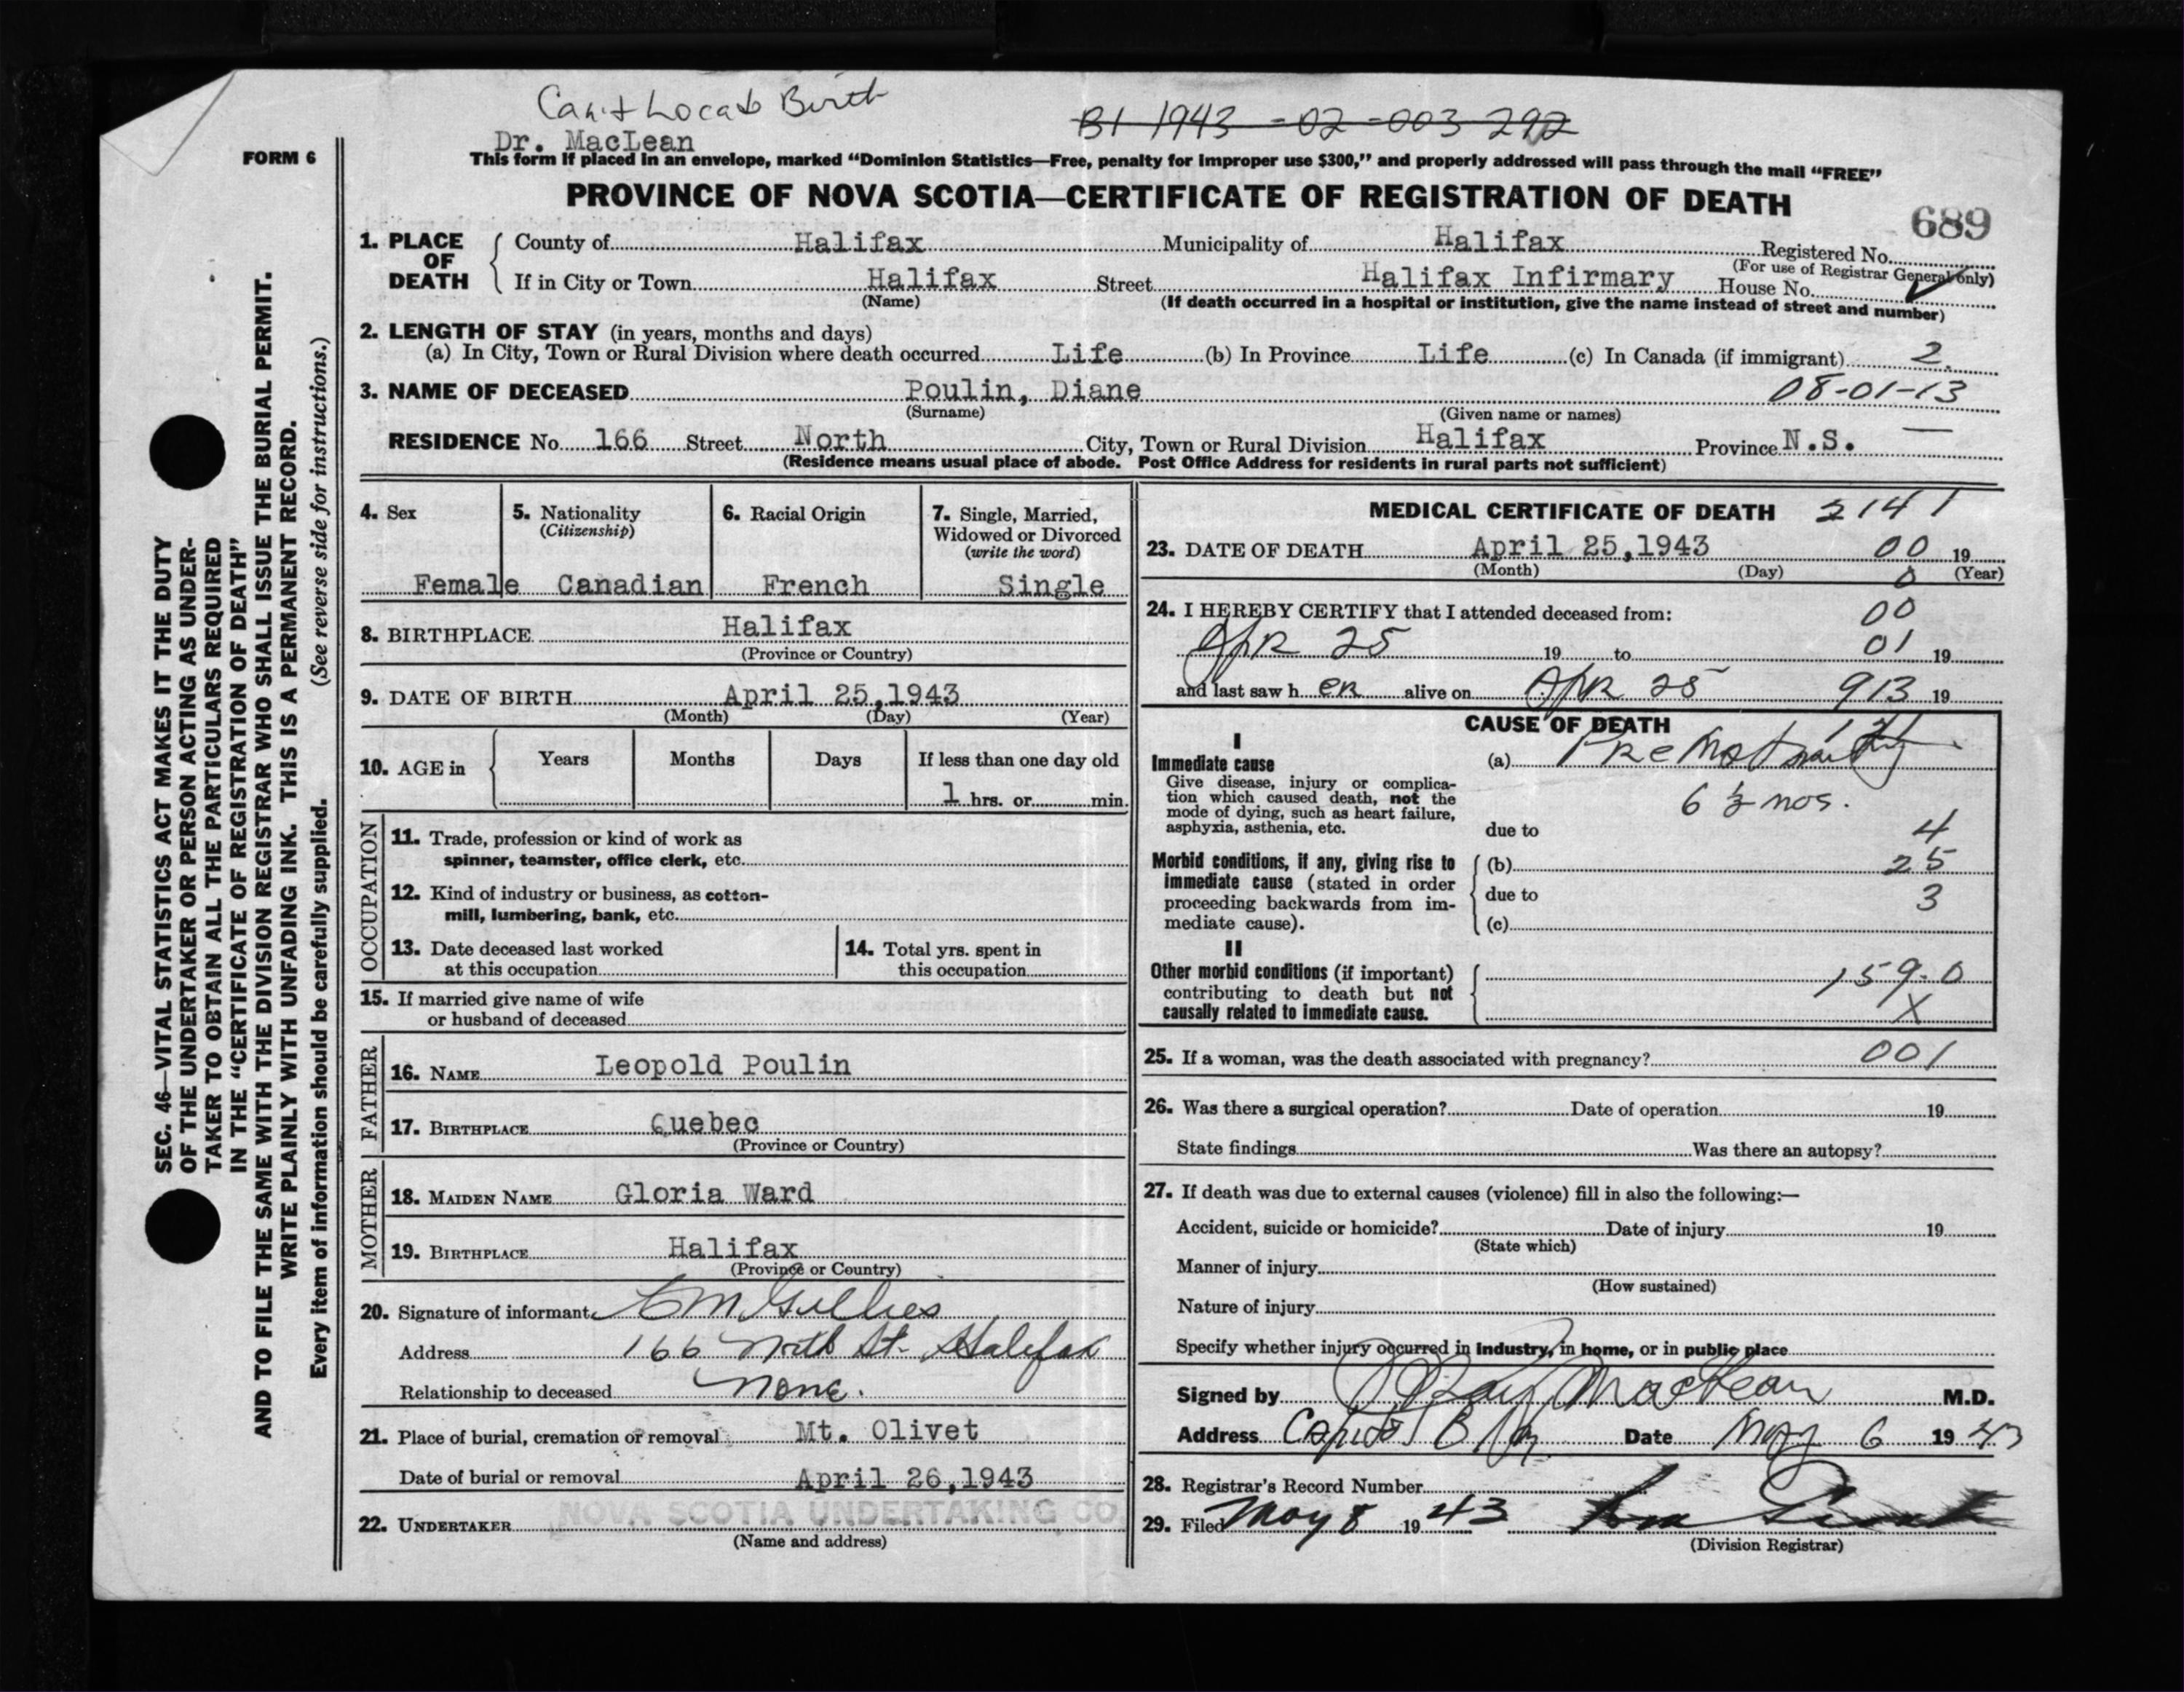 Can't Locate Birth
B1 1943 -02 -003 292
Dr. MacLean
FORM 6
This form if placed in an envelope, marked “Dominion Statistics—Free, penalty for improper use $300,” and properly addressed will pass through the mail “FREE”
PROVINCE OF NOVA SCOTIA—CERTIFICATE OF REGISTRATION OF DEATH
689
1. PLACE OF DEATH
County of Halifax Municipality of Halifax Registered No.
(For use of Registrar General only)
If in City or Town Halifax Street Halifax Infirmary House No.
(Name) (If death occurred in a hospital or institution, give the name instead of street and number)
2. LENGTH OF STAY (in years, months and days)
(a) In City, Town or Rural Division where death occurred Life (b) In Province Life (c) In Canada (if immigrant) 2.
3. NAME OF DECEASED Poulin, Diane 08-01-13
(Surname) (Given name or names)
RESIDENCE No. 166 Street North City, Town or Rural Division Halifax Province N.S. —
(Residence means usual place of abode. Post Office Address for residents in rural parts not sufficient)
4. Sex
Female
5. Nationality
(Citizenship)
Canadian
6. Racial Origin
French
7. Single, Married,
Widowed or Divorced
(write the word)
Single
8. BIRTHPLACE Halifax
(Province or Country)
9. DATE OF BIRTH April 25,1943
(Month) (Day) (Year)
10. AGE in
Years Months Days If less than one day old
1 hrs. or min.
OCCUPATION
11. Trade, profession or kind of work as
spinner, teamster, office clerk, etc.
12. Kind of industry or business, as cotton-
mill, lumbering, bank, etc.
13. Date deceased last worked
at this occupation
14. Total yrs. spent in
this occupation
15. If married give name of wife
or husband of deceased
FATHER
16. NAME Leopold Poulin
17. BIRTHPLACE Quebec
(Province or Country)
MOTHER
18. MAIDEN NAME Gloria Ward
19. BIRTHPLACE Halifax
(Province or Country)
20. Signature of informant Gillies
Address 166 North St. Halifax
Relationship to deceased none.
21. Place of burial, cremation or removal Mt. Olivet
Date of burial or removal April 26,1943
22. UNDERTAKER NOVA SCOTIA UNDERTAKING CO
(Name and address)
MEDICAL CERTIFICATE OF DEATH 2141
23. DATE OF DEATH April 25,1943 00 19
(Month) (Day) 0 (Year)
24. I HEREBY CERTIFY that I attended deceased from: 00
Apr 25 19 to 01 19
and last saw h er alive on Apr 25 913 19
CAUSE OF DEATH
I
Immediate cause
Give disease, injury or complica-
tion which caused death, not the
mode of dying, such as heart failure,
asphyxia, asthenia, etc.
(a) Prematurity
6 ½ mos.
due to 4
Morbid conditions, if any, giving rise to
immediate cause (stated in order
proceeding backwards from im-
mediate cause).
(b) 25
due to 3
(c)
II
Other morbid conditions (if important)
contributing to death but not
causally related to immediate cause.
159.0
X
25. If a woman, was the death associated with pregnancy? 001
26. Was there a surgical operation? Date of operation 19
State findings Was there an autopsy?
27. If death was due to external causes (violence) fill in also the following:—
Accident, suicide or homicide? Date of injury 19
(State which)
Manner of injury
(How sustained)
Nature of injury
Specify whether injury occurred in industry, in home, or in public place
Signed by MacLean M.D.
Address Capitol Date May 6 1943
28. Registrar's Record Number
29. Filed May 8 1943
(Division Registrar)
SEC. 46—VITAL STATISTICS ACT MAKES IT THE DUTY
OF THE UNDERTAKER OR PERSON ACTING AS UNDER-
TAKER TO OBTAIN ALL THE PARTICULARS REQUIRED
IN THE “CERTIFICATE OF REGISTRATION OF DEATH”
AND TO FILE THE SAME WITH THE DIVISION REGISTRAR WHO SHALL ISSUE THE BURIAL PERMIT.
WRITE PLAINLY WITH UNFADING INK. THIS IS A PERMANENT RECORD.
Every item of information should be carefully supplied. (See reverse side for instructions.)